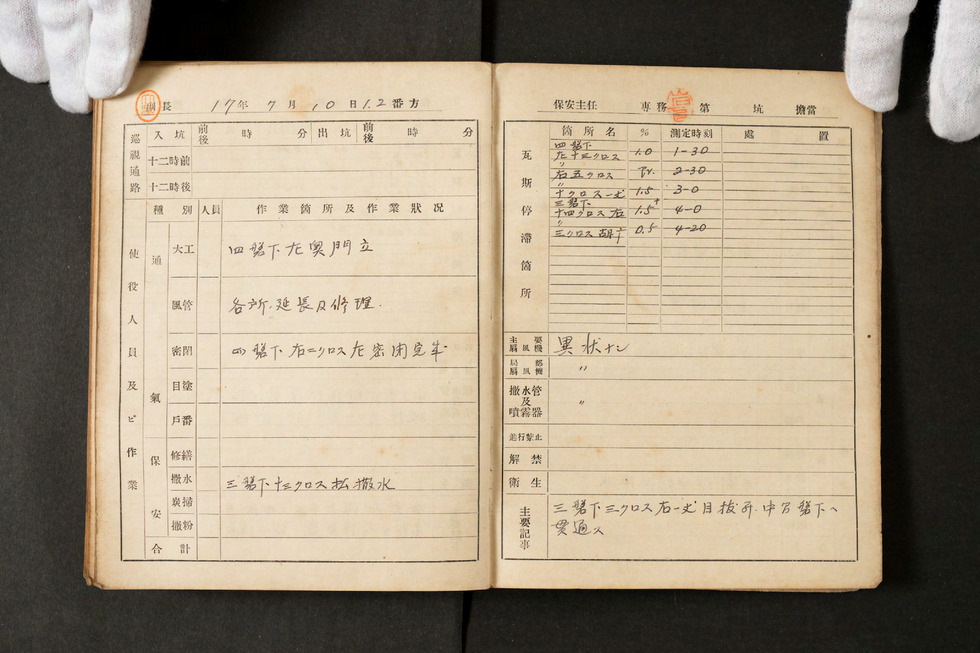 長 17年 7月 10日 1.2番方
巡視通路 入坑 前後 時 分 出坑 前後 時 分
十二時前
十二時後
使役人員及ビ作業
種別 人員 作業箇所及作業狀況
通氣
大工 四盤下左奥門立
風管 各所延長及修理.
密閉 四盤下右二クロス左密闭完成
目塗
戶番
保安
修繕
撒水 三盤下十三クロス払撒水
炭掃
撒粉
合計
保安主任 專務 第 坑 擔當
瓦斯停滯箇所
箇所名 % 測定時刻 處置
四盤下
左十三クロス 1.0 1-30
〃
右五クロス Tr. 2-30
〃
十クロス一丈 1.5 3-0
三盤下
十四クロス右 1.5+ 4-0
〃
三クロス 0.5 4-20
主要扇風機 異狀ナシ
局部扇風機 〃
撒水管及噴霧器 〃
進行禁止
解禁
衛生
主要記事
三盤下三クロス右一丈目抜昇.中間盤下へ
貫通ス